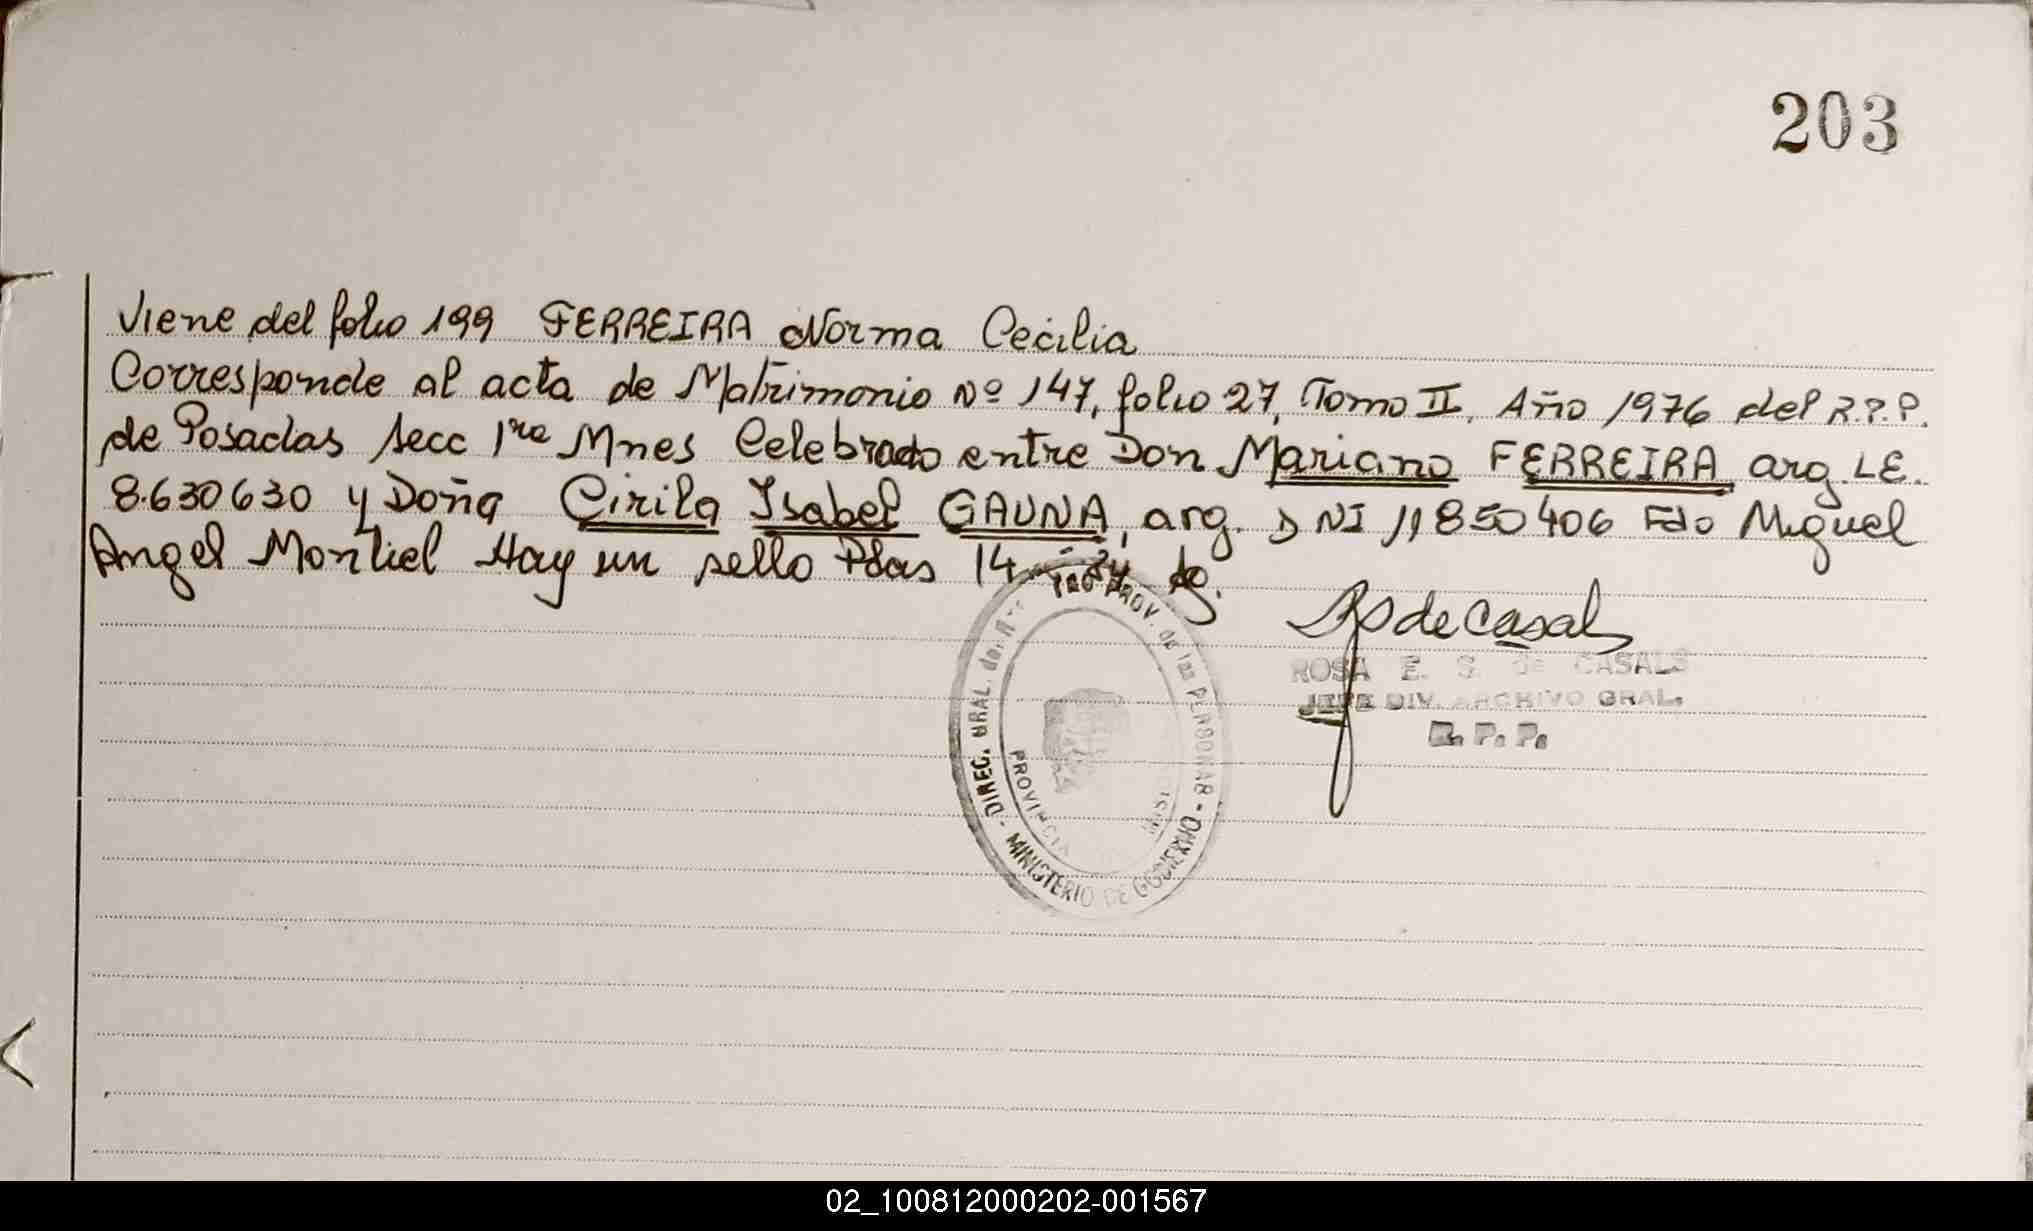 203
Viene del folio 199 FERREIRA Norma Cecilia
Corresponde al acta de Matrimonio Nº 147, folio 27, Tomo II, Año 1976 del R.P.P.
de Posadas Secc 1ra Mnes Celebrado entre Don Mariano FERREIRA arg. LE.
8.630630 y Doña Cirila Isabel GAUNA, arg. DNI 11850406 Fdo Miguel
Angel Montiel Hay un sello Pdas 14
DIREC. GRAL. del PROV. de las PERSONAS - MINISTERIO DE GOBIERNO -
PROVINCIA
de Casal
ROSA E. S. de CASALS
JEFE DIV. ARCHIVO GRAL.
R. P. P.
02_100812000202-001567